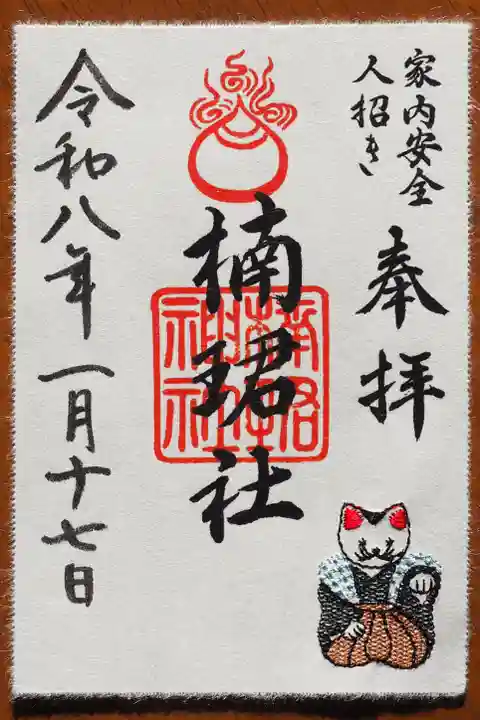 家内安全
人招き
奉拝
楠珺社
令和八年一月十七日